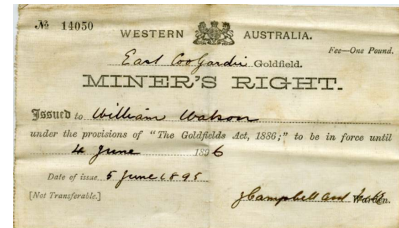 No 14050
WESTERN AUSTRALIA.
Fee—One Pound.
East Coolgardie Goldfield.
MINER'S RIGHT.
Issued to William Watson
under the provisions of "The Goldfields Act, 1886;" to be in force until
4 June 1896
Date of issue 5 June 1895
[Not Transferable.] Warden.